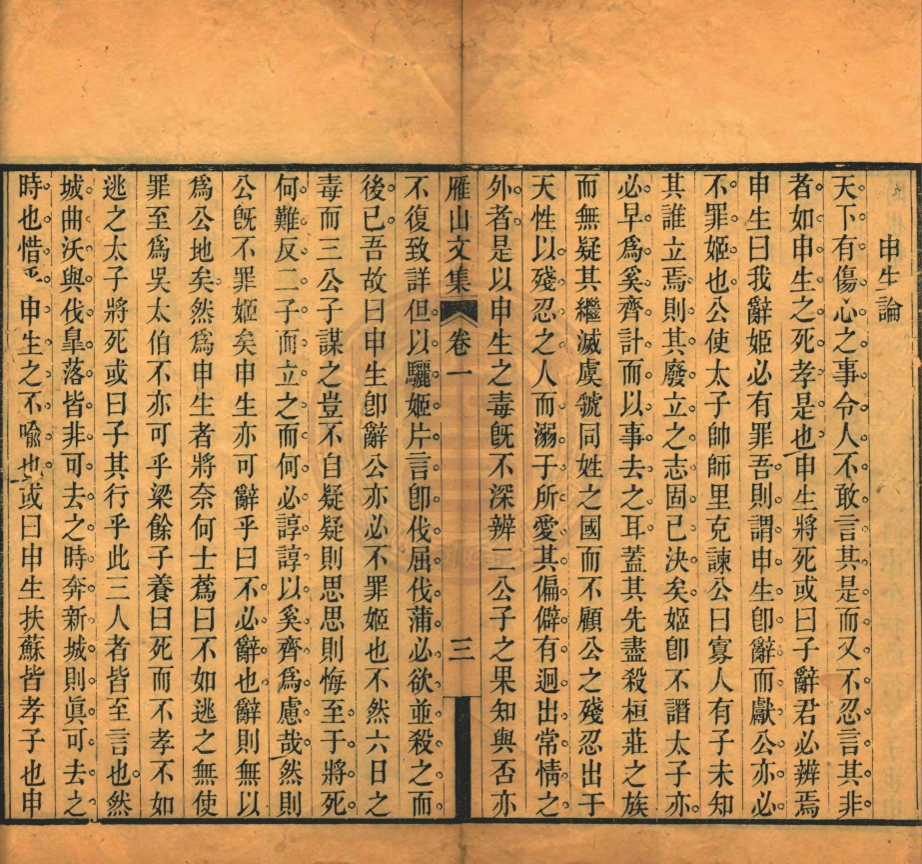 申生論
天下有傷心之事令人不敢言其是而又不忍言其非
者如申生之死孝是也申生將死或曰子辭君必辨焉
申生曰我辭姬必有罪吾則謂申生卽辭而獻公亦必
不罪姬也公使太子帥師里克諫公曰寡人有子未知
其誰立焉則其廢立之志固已決矣姬卽不譖太子亦
必早爲奚齊計而以事去之耳蓋其先盡殺桓莊之族
而無疑其繼滅虞虢同姓之國而不顧公之殘忍出于
天性以殘忍之人而溺于所愛其偏僻有迥出常情之
外者是以申生之毒旣不深辨二公子之果知與否亦
雁山文集 卷一 三
不復致詳但以驪姬片言卽伐屈伐蒲必欲並殺之而
後已吾故曰申生卽辭公亦必不罪姬也不然六日之
毒而三公子謀之豈不自疑疑則思思則悔至于將死
何難反二子而立之而何必諄諄以奚齊爲慮哉然則
公旣不罪姬矣申生亦可辭乎曰不必辭也辭則無以
爲公地矣然爲申生者將奈何士蔿曰不如逃之無使
罪至爲吳太伯不亦可乎梁餘子養曰死而不孝不如
逃之太子將死或曰子其行乎此三人者皆至言也然
城曲沃與伐臯落皆非可去之時奔新城則眞可去之
時也惜乎申生之不喻也或曰申生扶蘇皆孝子也申